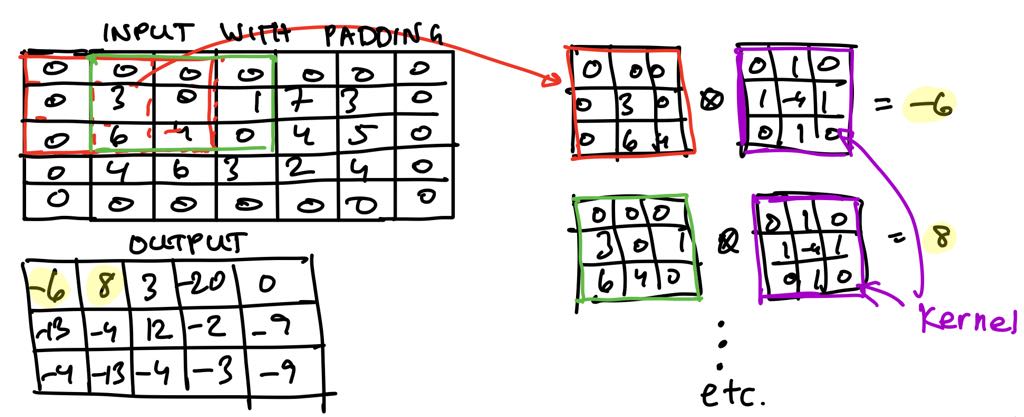 INPUT WITH PADDING
0 0 0 0 0 0 0
0 3 0 1 7 3 0
0 6 4 0 4 5 0
0 4 6 3 2 4 0
0 0 0 0 0 0 0
OUTPUT
-6 8 3 -20 0
-13 -4 12 -2 -9
-4 -13 -4 -3 -9
0 0 0
0 3 0
0 6 4
⊗
0 1 0
1 -4 1
0 1 0
= -6
0 0 0
3 0 1
6 4 0
⊗
0 1 0
1 -4 1
0 1 0
= 8
Kernel
⋮
etc.